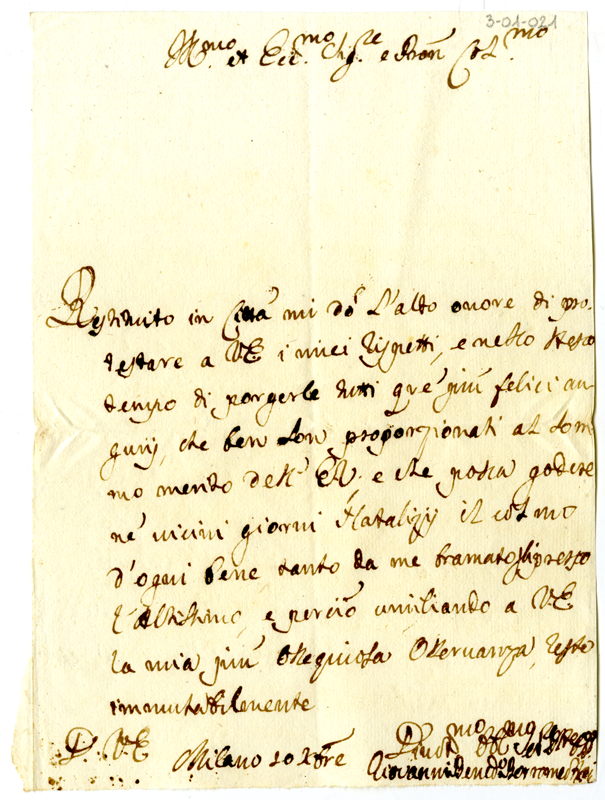 3-01-021
Ill.mo et Ecc.mo Sig.re e Pron Col.mo
Restituito in Città mi dò l'alto onore di pro-
testare a V.E. i miei rispetti, e nello stesso
tempo di porgerle tutti què più felici au-
gurij, che ben son proporzionati al som
mo merito dell' E.V. e che possa godere
nè vicini giorni Natalizij il colmo
d'ogni bene tanto da me bramatogli presso
l'Altissimo, e perciò umiliando a V.E.
la mia più ossequiosa osservanza, resto
immutabilmente
D. V.E.
Milano 20 Xbre
Giovanni Bened.o Borromeo